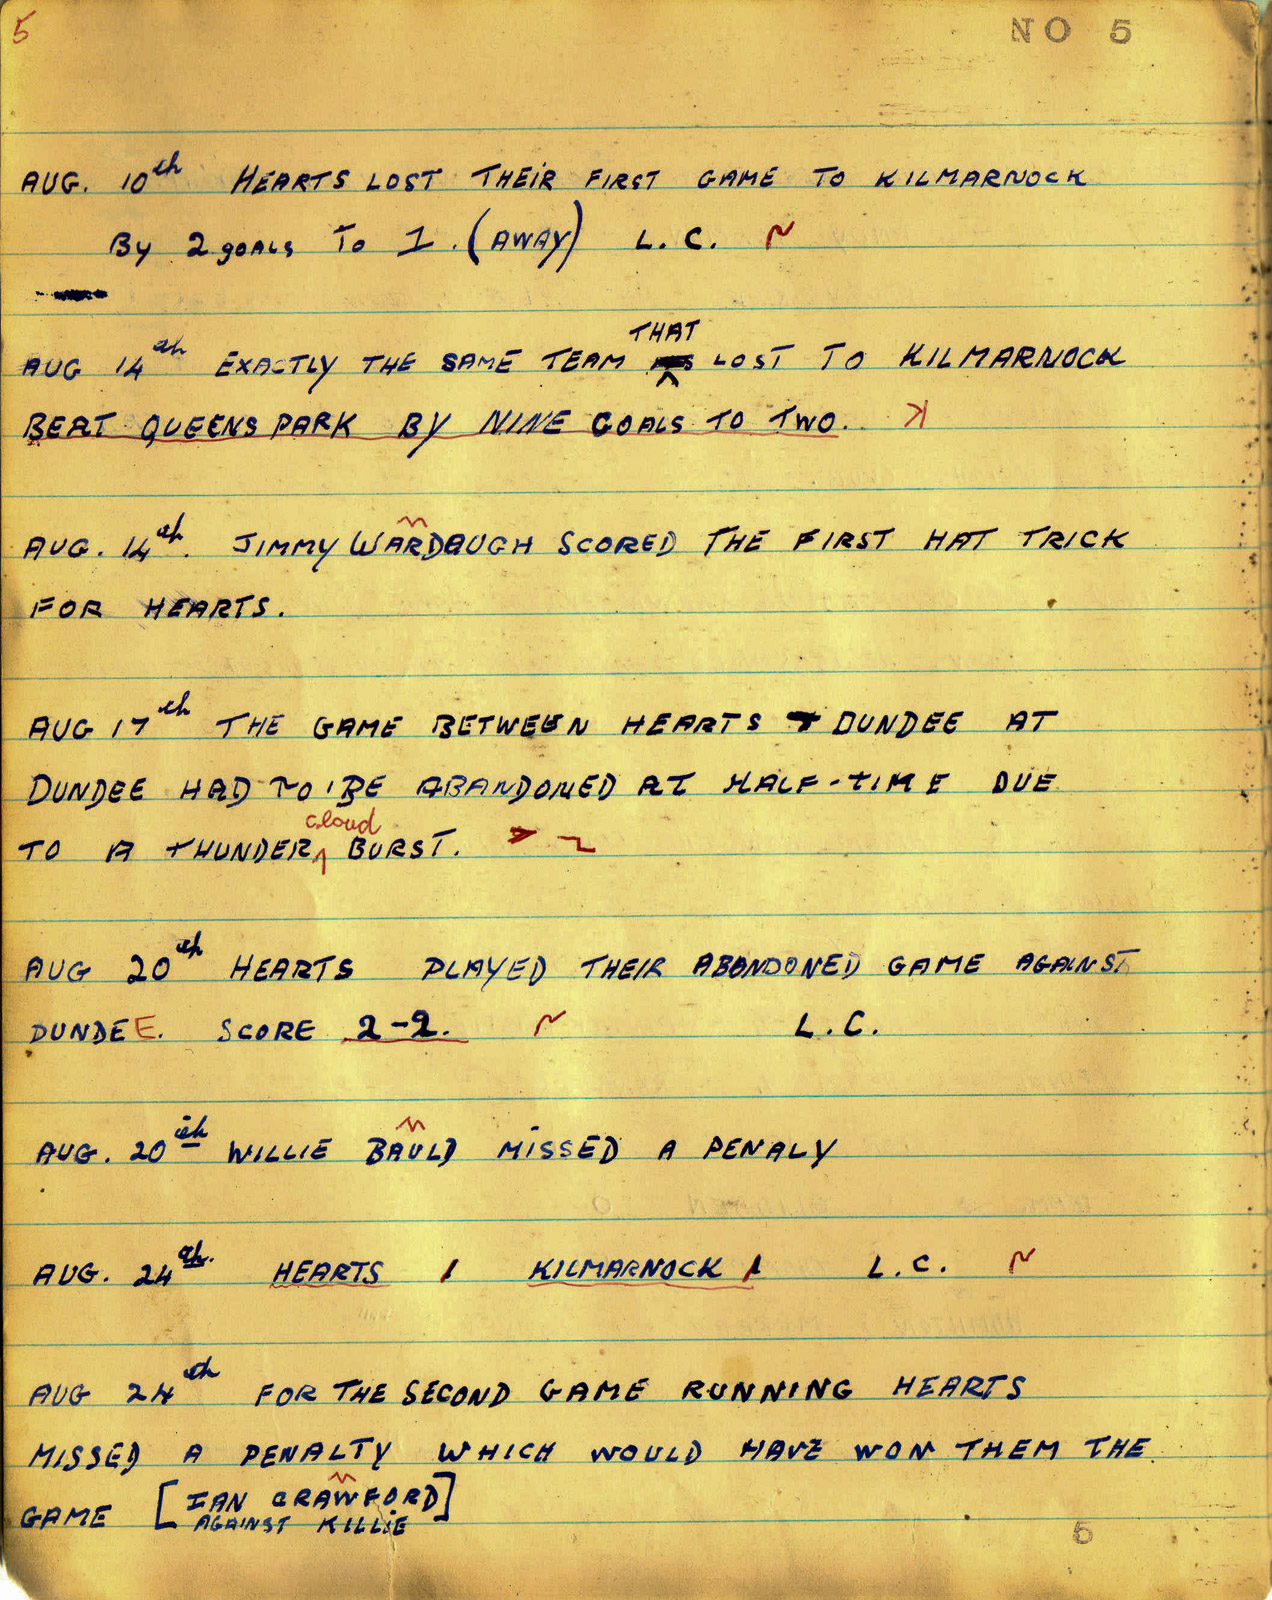 5
NO 5
AUG. 10th HEARTS LOST THEIR FIRST GAME TO KILMARNOCK
By 2 goals To 1. (AWAY) L. C.
THAT
AUG 14th EXACTLY THE SAME TEAM LOST TO KILMARNOCK
BEAT QUEENS PARK BY NINE GOALS TO TWO.
AUG. 14th. JIMMY WARDAUGH SCORED THE FIRST HAT TRICK
FOR HEARTS.
AUG 17th THE GAME BETWEEN HEARTS + DUNDEE AT
DUNDEE HAD TO BE ABANDONED AT HALF-TIME DUE
cloud
TO A THUNDER BURST.
AUG 20th HEARTS PLAYED THEIR ABANDONED GAME AGAINST
DUNDEE. SCORE 2-2. L.C.
AUG. 20th WILLIE BAULD MISSED A PENALY
AUG. 24th. HEARTS 1 KILMARNOCK 1 L.C.
AUG 24th FOR THE SECOND GAME RUNNING HEARTS
MISSED A PENALTY WHICH WOULD HAVE WON THEM THE
GAME [IAN CRAWFORD
AGAINST KILLIE]
5